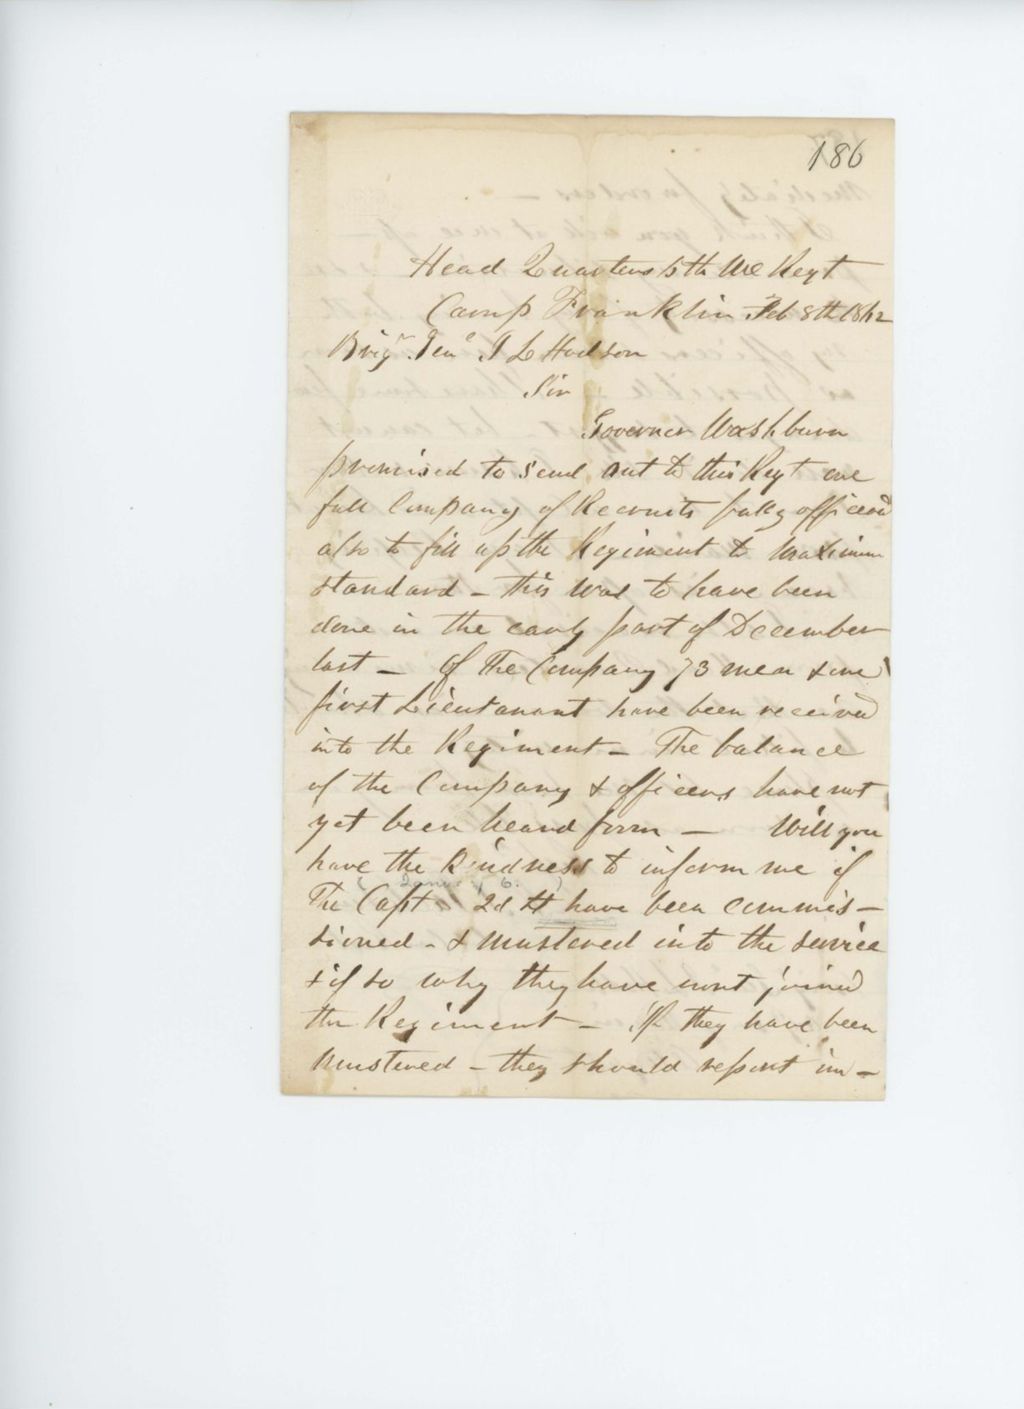 186
Head Quarters 5th Me Regt
Camp Franklin Feb 8th 1862
Brigr Genl J L Hodson
Sir
Governer Washburn
promised to send out to this Regt one
full Company of Recruits fully officered
also to fill up the Regiment to Maximum
standard - this was to have been
done in the early part of December
last - Of the Company 73 men & one
first Lieutanant have been received
into the Regiment - The balance
of the Company & officers have not
yet been heard form - Will you
have the kindness to inform me if
The Capt & 2d Lt have been commis-
sioned - & mustered into the service
& if so why they have not joined
the Regiment - If they have been
mustered - they should report im-